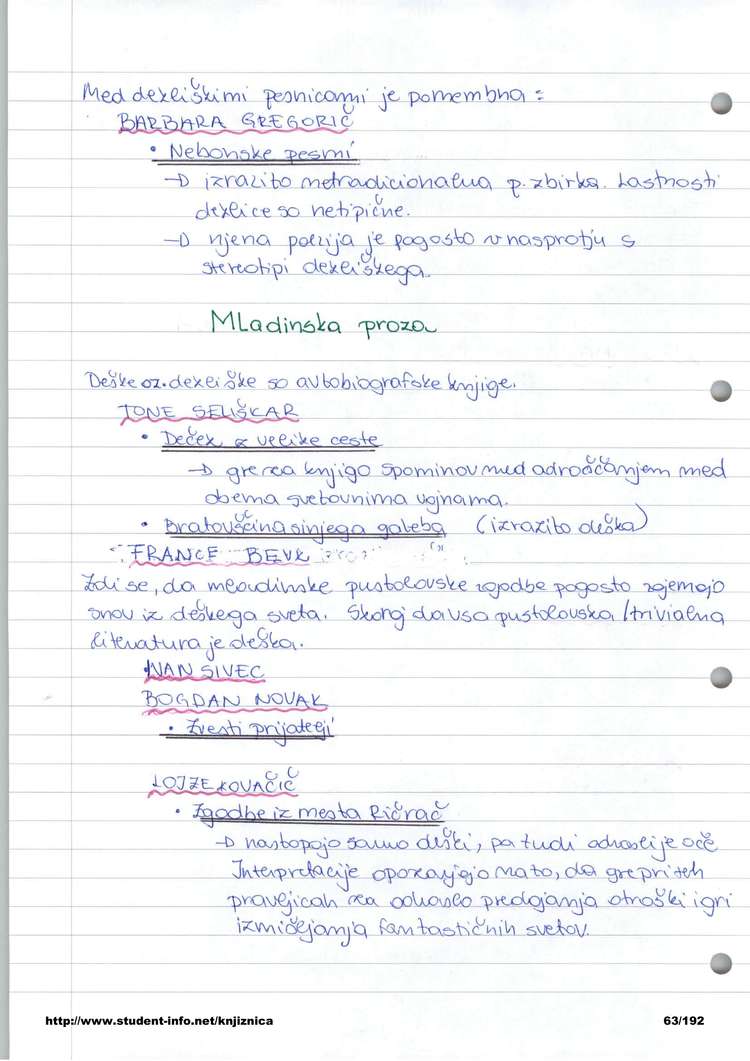 Med dekliškimi pesnicami je pomembna:
BARBARA GREGORIČ
• Nebonske pesmi
→ izrazito netradicionalna p. zbirka. Lastnosti
deklice so netipične.
→ njena poezija je pogosto v nasprotju s
stereotipi dekliškega.
Mladinska proza
Deške oz. dekliške so avtobiografske knjige.
TONE SELIŠKAR
• Deček z velike ceste
→ gre za knjigo spominov med odraščanjem med
obema svetovnima vojnama.
• Bratovščina sinjega galeba (izrazito deška)
FRANCE BEVK
Zdi se, da mladinske pustolovske zgodbe pogosto zajemajo
snov iz deškega sveta. Skoraj da vsa pustolovska/trivialna
literatura je deška.
IVAN SIVEC
BOGDAN NOVAK
• Zvesti prijatelji
LOJZE KOVAČIČ
• Zgodbe iz mesta Ričrač
→ nastopajo samo dečki, pa tudi odrasli je oče
Interpretacije opozarjajo na to, da gre pri teh
pravljicah za odraslo predajanja otroški igri
izmišljanja fantastičnih svetov.
http://www.student-info.net/knjiznica
63/192